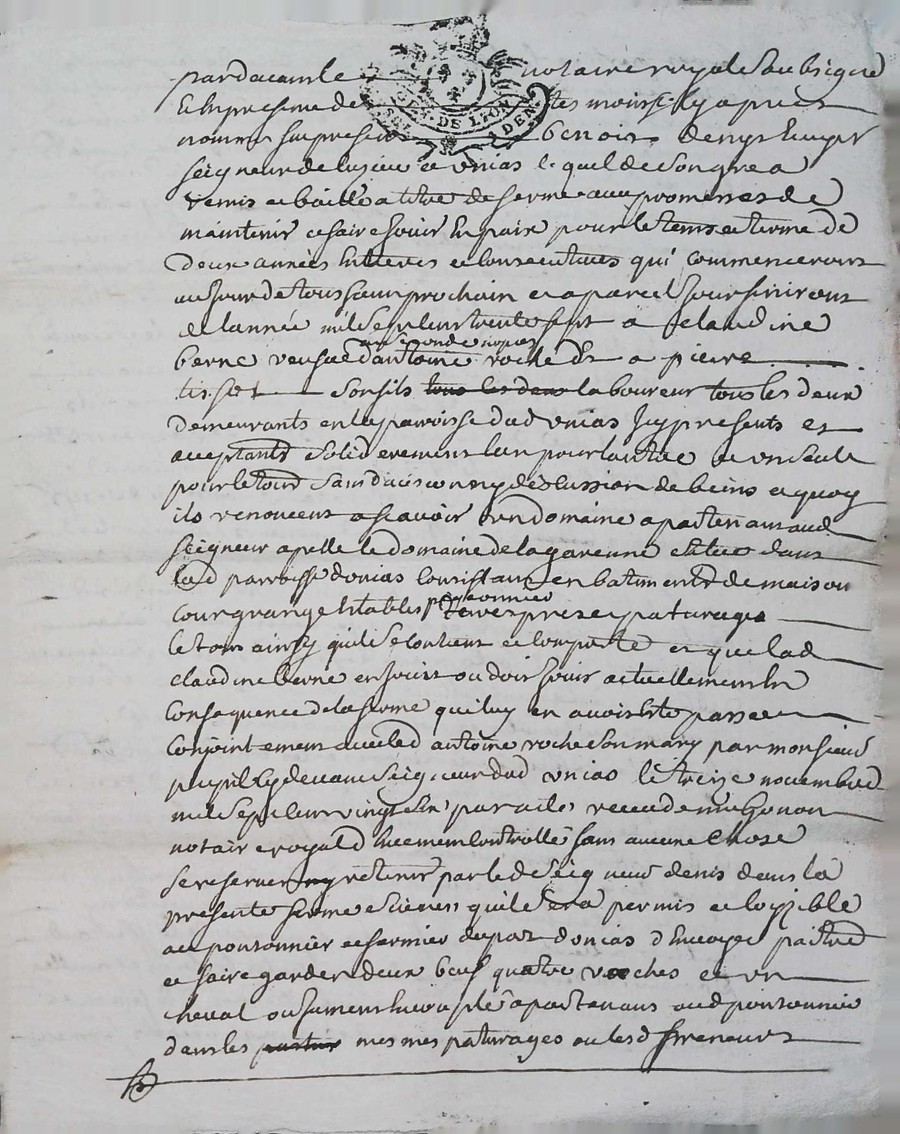 pardevant le notaire royal soubsigné
et en presence des tesmoins cy apres
nommes fut present benoist denys ecuyer
seigneur de et unias lequel de son gre a
remis et baillé a titre de ferme avec promesses de
maintenir et faire jouir en paix pour le tems et terme de
deux années entieres et consecutives qui commenceront
au jour de toussaint prochain et a pareil jour finiront
de l'année mil sept cent trente sept a claudine
en seconde nopces
berne veufve d'antoine roche et a pierre
tisset son fils tous les deux laboureur tous les deux
demeurants en la paroisse dud unias icy presents et
acceptants solidairement l'un pour l'autre et un seul
pour le tout sans division ny discussion de biens a quoy
ils renoncent a scavoir un domaine apartenant aud
seigneur apellé le domaine de la garenne situé dans
lad parroisse d'unias consistant en batiments de maison
pigeonnier
cour grange etables terres prez et paturages
le tout ainsy qu'il se contient et comporte et que lad
claudine berne en jouit ou doit jouir actuellement en
consequence de la ferme qui luy en avoit eté passée
conjointement avec led antoine roche son mary par monsieur
seigneur dud unias le treize novembre
mil sept cent vingt par acte receu de
notaire royal duement controllé sans aucune chose
se reserver ny retenir par led seigneur denis dans la
presente ferme si ce n'est qu'il sera permis et loysible
au pontonnier et fermier du port d'unias d'envoyer paitre
et faire garder deux beufs quatre vaches et un
cheval ou jument apartenans aud pontonnier
dans les mesmes paturages ou lesd preneurs